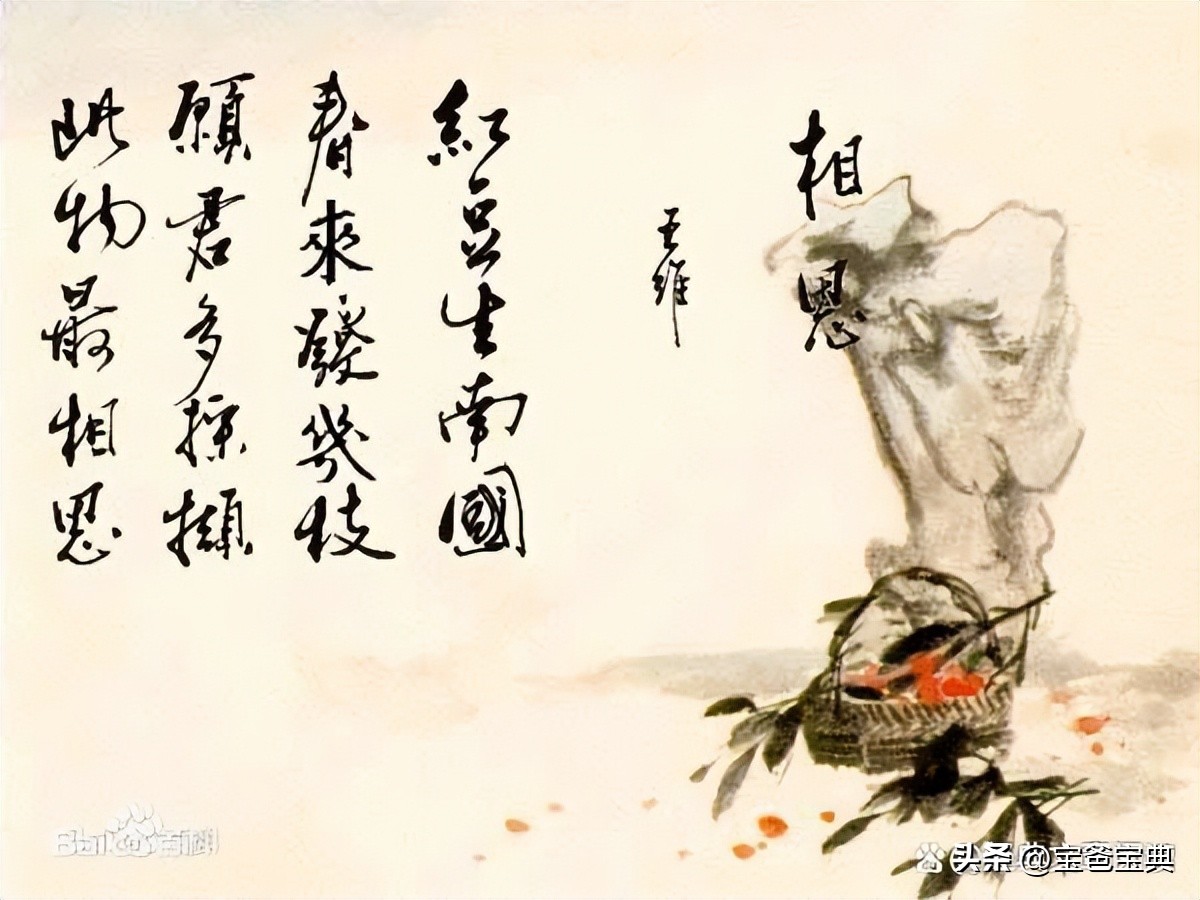 相思
王维
紅豆生南國
春來發幾枝
願君多採擷
此物最相思
Bai百科
头条 @宝爸宝典